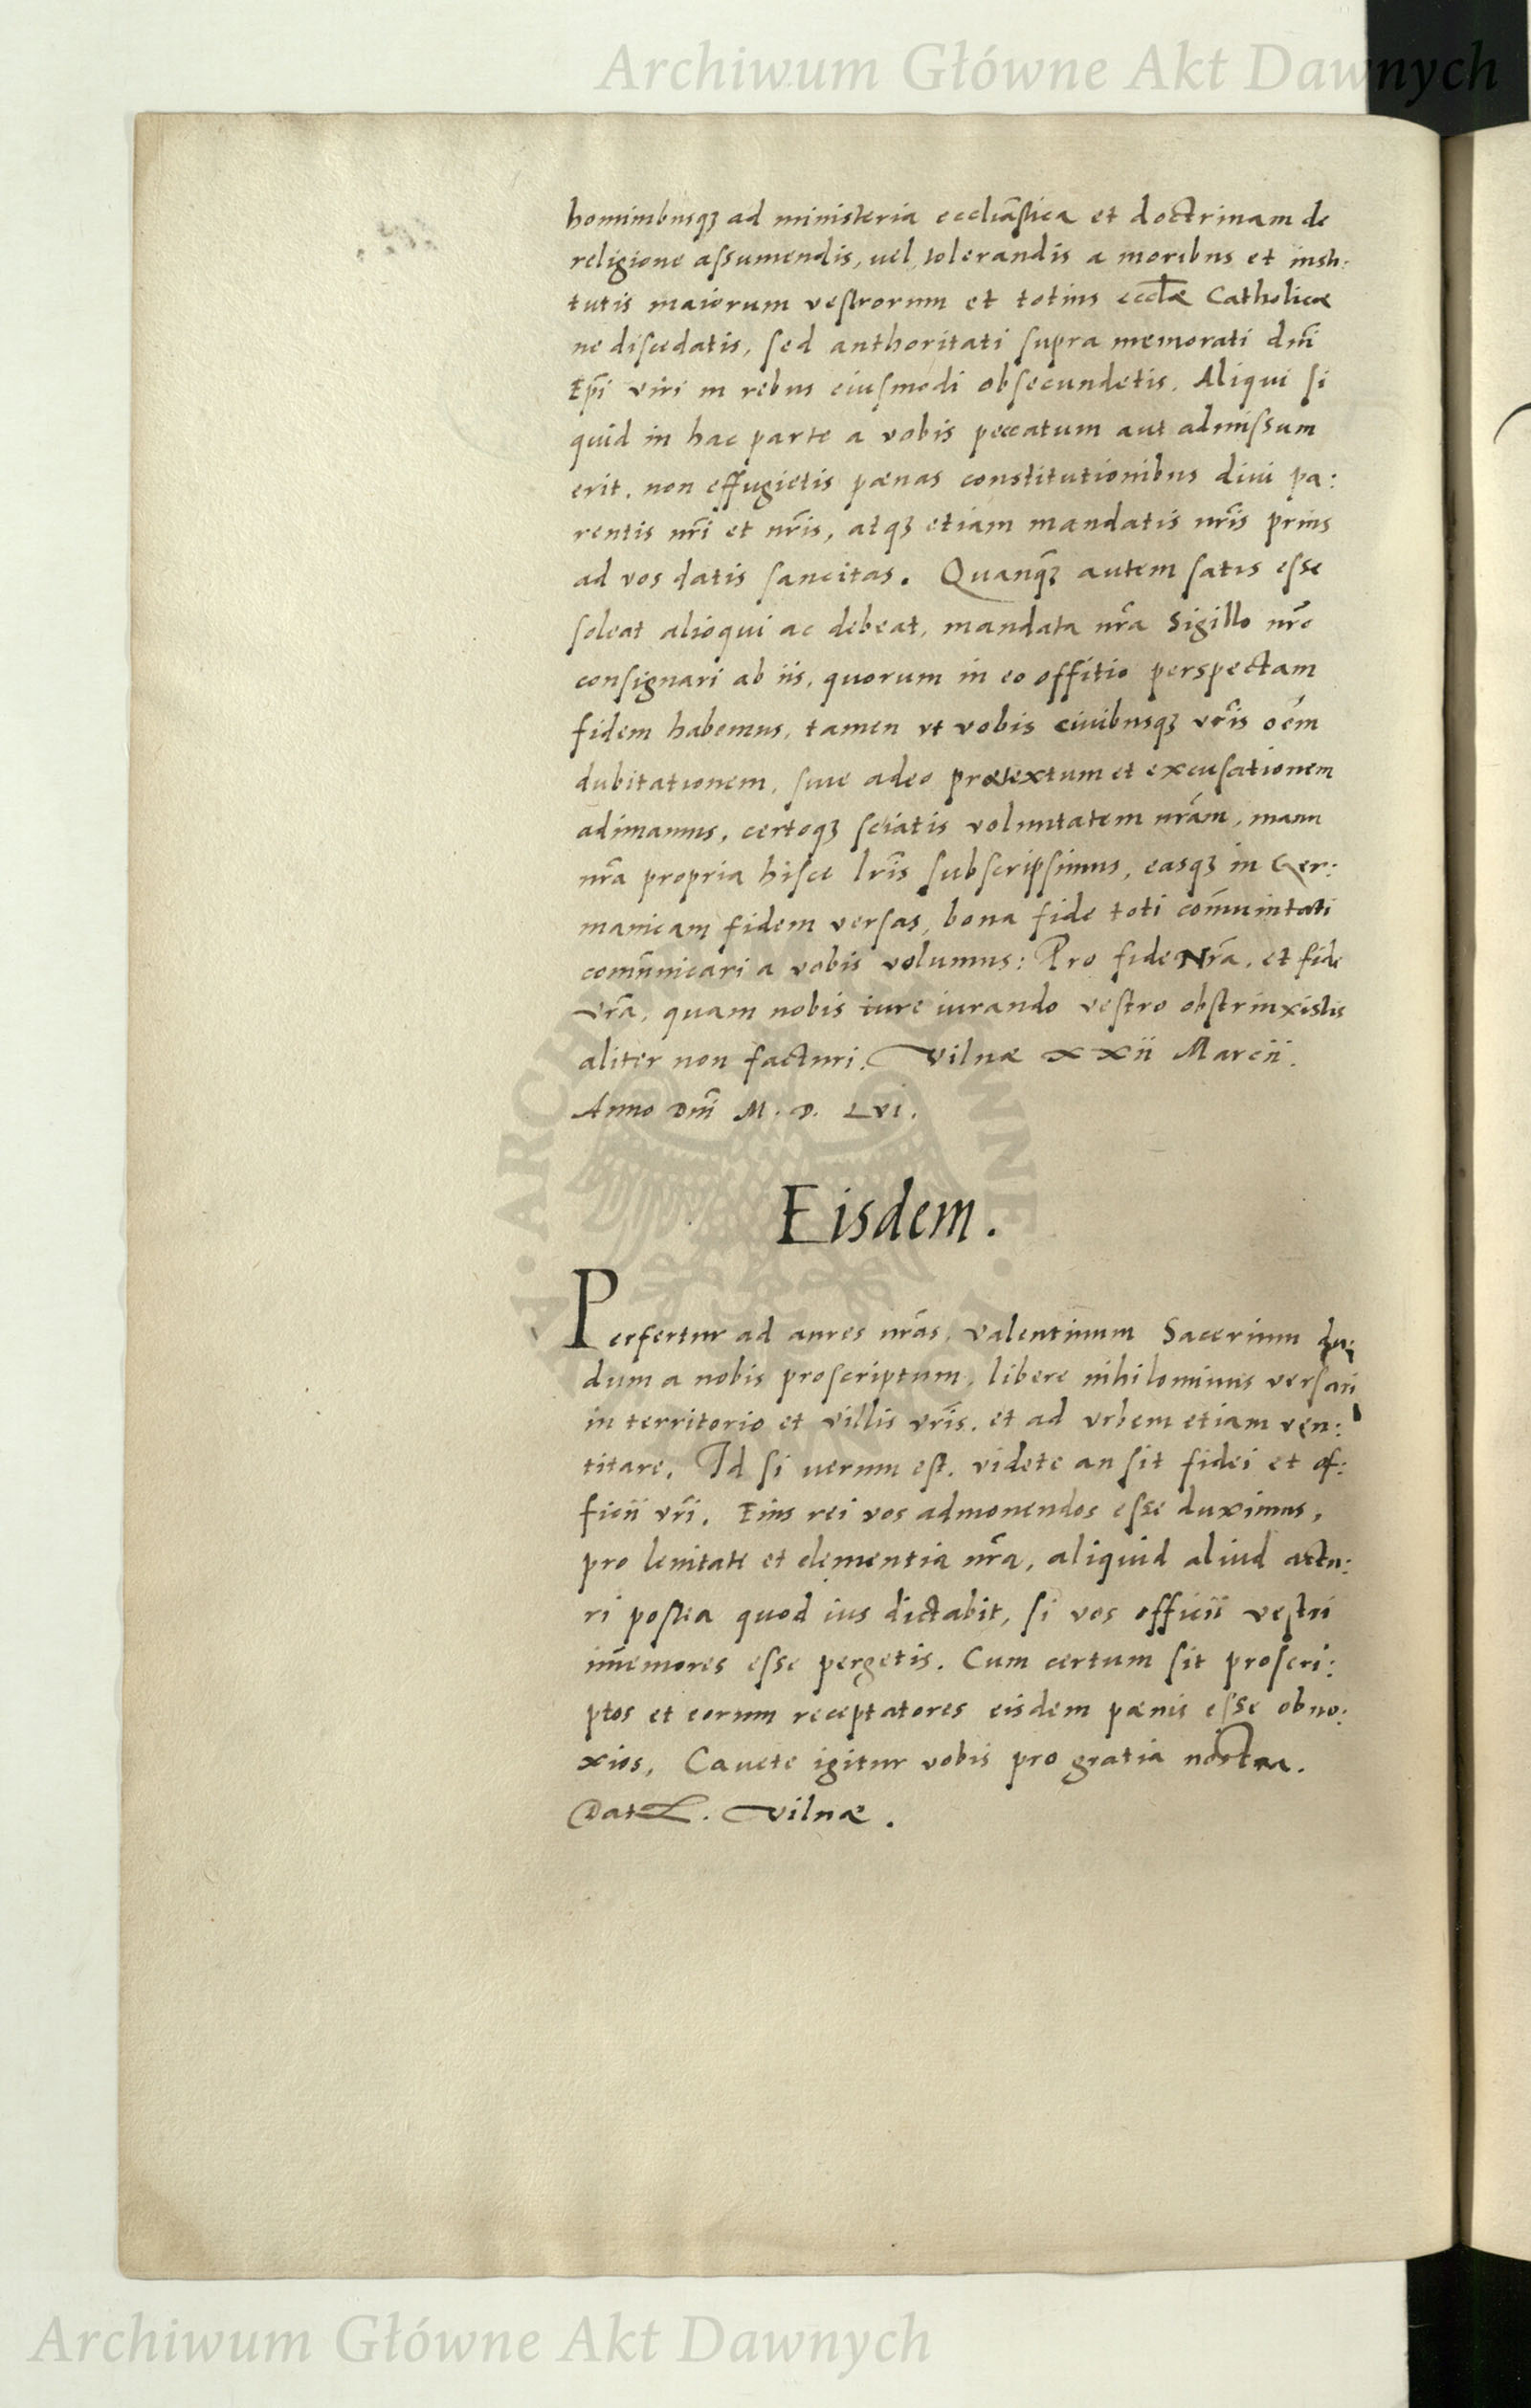 Archiwum Główne Akt Dawnych
hominibusq₃ ad ministeria eccliãstica et doctrinam de
religione assumendis, uel tolerandis a moribus et insti:
tutis maiorum vestrorum et totius ecclæ Catholicæ
ne discedatis, sed authoritati supra memorati dni
Epi viri in rebus eiusmodi obsecundetis. Aliqui si
quid in hac parte a vobis peccatum aut admissum
erit, non effugietis pænas constitutionibus diui pa:
rentis nri et nris, atq₃ etiam mandatis nris prius
ad vos datis sancitas. Quanq₃ autem satis esse
soleat alioqui ac debeat, mandata nra Sigillo nro
consignari ab iis, quorum in eo offitio perspectam
fidem habemus, tamen vt vobis ciuibusq₃ vris oem
dubitationem, siue adeo prætextum et excusationem
adimamus, certoq₃ sciatis voluntatem nram, manu
nra propria hisce lris subscripsimus, easq₃ in Ger:
manicam fidem versas, bona fide toti comuintati
comunicari a vobis volumus: Pro fide Nra, et fide
vra, quam nobis iure iurando vestro obstrinxistis
aliter non facturi. Vilnæ xxii Marcii.
Anno Dni M. D. Lvi.
Eisdem.
Perfertur ad aures nras, Valentinum Sacerinum du:
dum a nobis proscriptum, libere nihilominus versari
in territorio et villis vris, et ad vrbem etiam ven:
titare. Id si uerum est, videte an sit fidei et of:
ficii vri. Eius rei vos admonendos esse duximus,
pro lenitate et clementia nra, aliquid aliud actu:
ri postea quod ius dictabit, si vos officii vestri
imemores esse pergetis. Cum certum sit proscri:
ptos et eorum receptatores eisdem pænis esse obno:
xios, Cauete igitur vobis pro gratia nostra.
Dat. Vilnæ.
Archiwum Główne Akt Dawnych